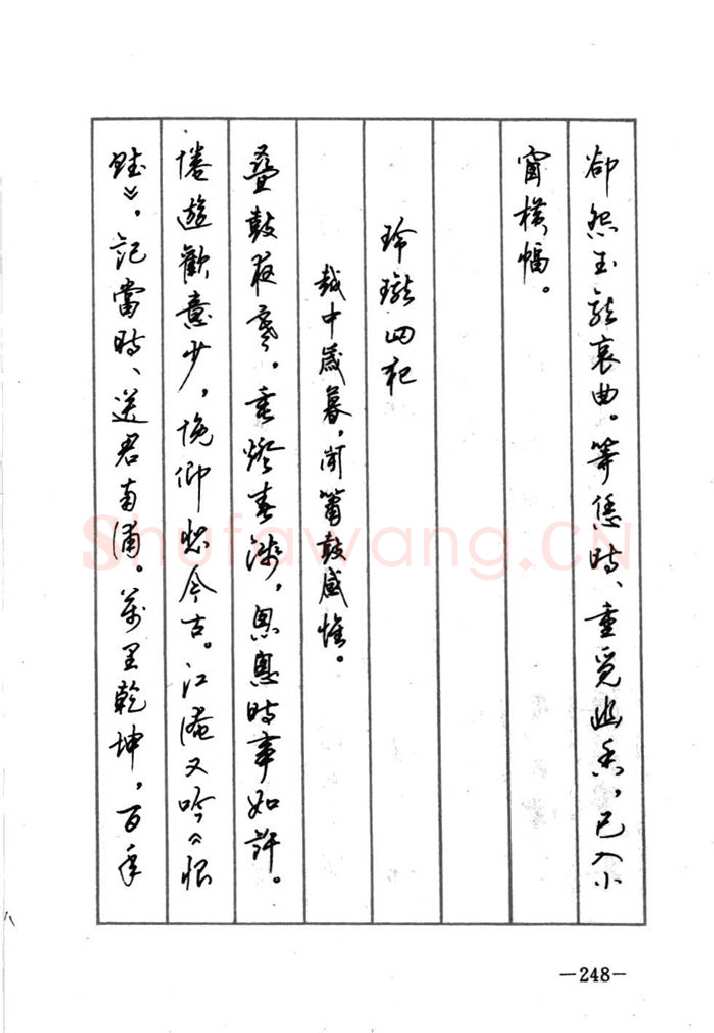 卻怨玉龍哀曲。等恁時、重覓幽香，已入小
窗橫幅。
玲瓏四犯
越中歲暮，聞簫鼓感懷。
疊鼓夜寒，垂燈春淺，恖恖時事如許。
倦遊歡意少，俛仰悲今古。江淹又吟《恨
賦》，記當時、送君南浦。萬里乾坤，百年
Shufawang.CN
—248—